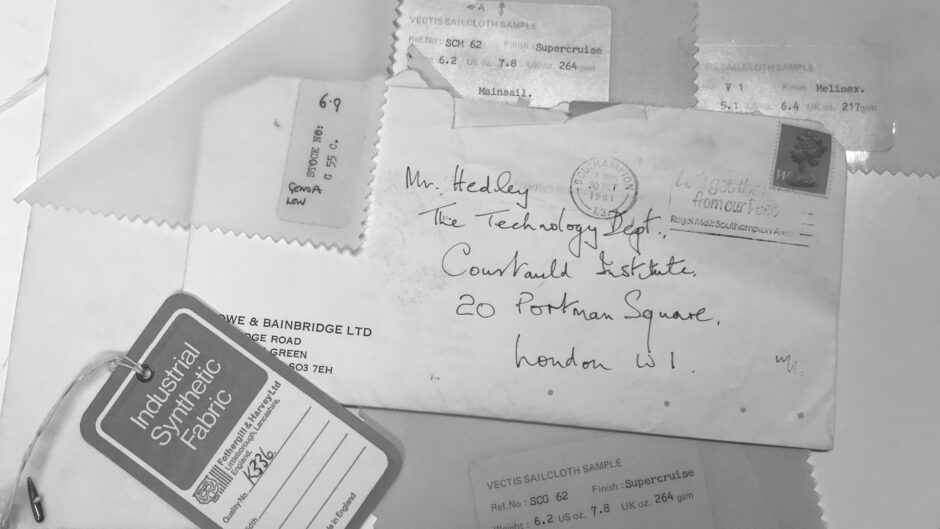 A
VECTIS SAILCLOTH SAMPLE
Ref.No: SCM 62 Finish: Supercruise
6.2 US oz. 7.8 UK oz. 264 gsm
Mainsail.
VECTIS SAILCLOTH SAMPLE
V 1 Finish Melinex.
5.1 US oz. 6.4 UK oz. 217gsm
6.9
STOCK NO:
G 55 C.
GENOA
LOW
SOUTHAMPTON
20 OCT
1981
T.37
Let's get the
from our Post
Royal Mail: Southampton Area
14P
Mr. Hedley
The Technology Dept.,
Courtauld Institute.
20 Portman Square,
London W1.
OWE & BAINBRIDGE LTD
DGE ROAD
GREEN
SO3 7EH
Industrial
Synthetic
Fabric
Fothergill & Harvey Ltd
Littleborough, Lancashire,
England.
Quality No. K336.
Width
Made in England
VECTIS SAILCLOTH SAMPLE
Ref.No: SCG 62 Finish: Supercruise
Weight: 6.2 US oz. 7.8 UK oz. 264 gsm